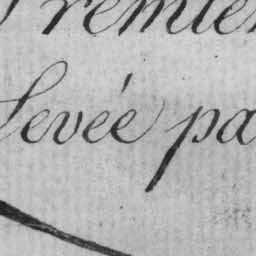 Premier
Levée pa